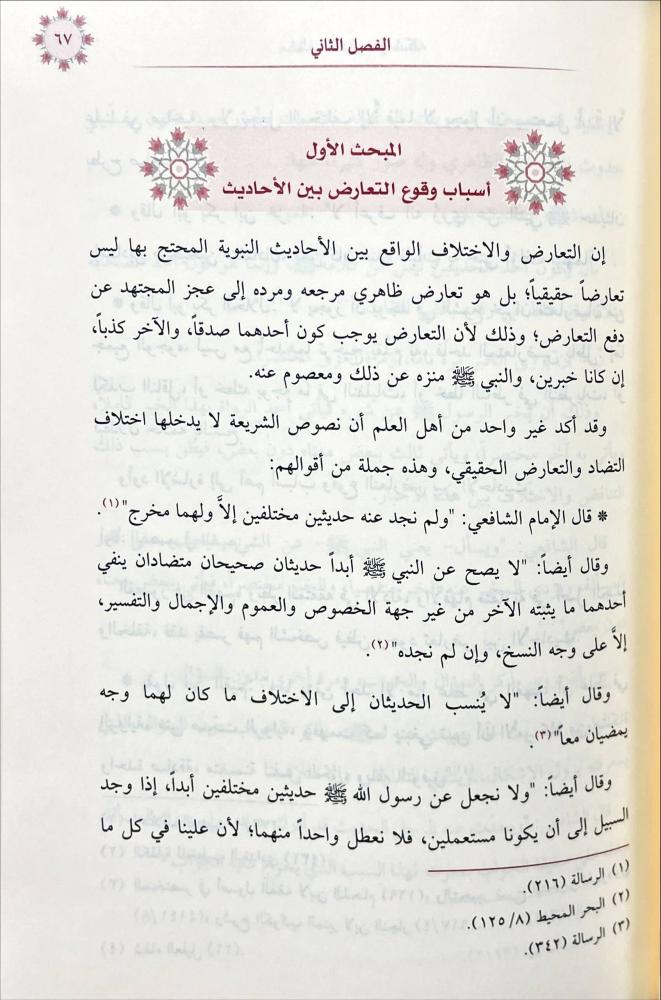 ٦٧
الفصل الثاني
المبحث الأول
أسباب وقوع التعارض بين الأحاديث
إن التعارض والاختلاف الواقع بين الأحاديث النبوية المحتج بها ليس
تعارضاً حقيقياً؛ بل هو تعارض ظاهري مرجعه ومرده إلى عجز المجتهد عن
دفع التعارض؛ وذلك لأن التعارض يوجب كون أحدهما صدقاً، والآخر كذباً،
إن كانا خبرين، والنبي ﷺ منزه عن ذلك ومعصوم عنه.
وقد أكد غير واحد من أهل العلم أن نصوص الشريعة لا يدخلها اختلاف
التضاد والتعارض الحقيقي، وهذه جملة من أقوالهم:
* قال الإمام الشافعي: "ولم نجد عنه حديثين مختلفين إلاَّ ولهما مخرج"(١).
وقال أيضاً: "لا يصح عن النبي ﷺ أبداً حديثان صحيحان متضادان ينفي
أحدهما ما يثبته الآخر من غير جهة الخصوص والعموم والإجمال والتفسير،
إلاَّ على وجه النسخ، وإن لم نجده"(٢).
وقال أيضاً: "لا يُنسب الحديثان إلى الاختلاف ما كان لهما وجه
يمضيان معاً"(٣).
وقال أيضاً: "ولا نجعل عن رسول الله ﷺ حديثين مختلفين أبداً، إذا وجد
السبيل إلى أن يكونا مستعملين، فلا نعطل واحداً منهما؛ لأن علينا في كل ما
(١) الرسالة (٢١٦).
(٢) البحر المحيط (٨/ ١٢٥).
(٣) الرسالة (٣٤٢).